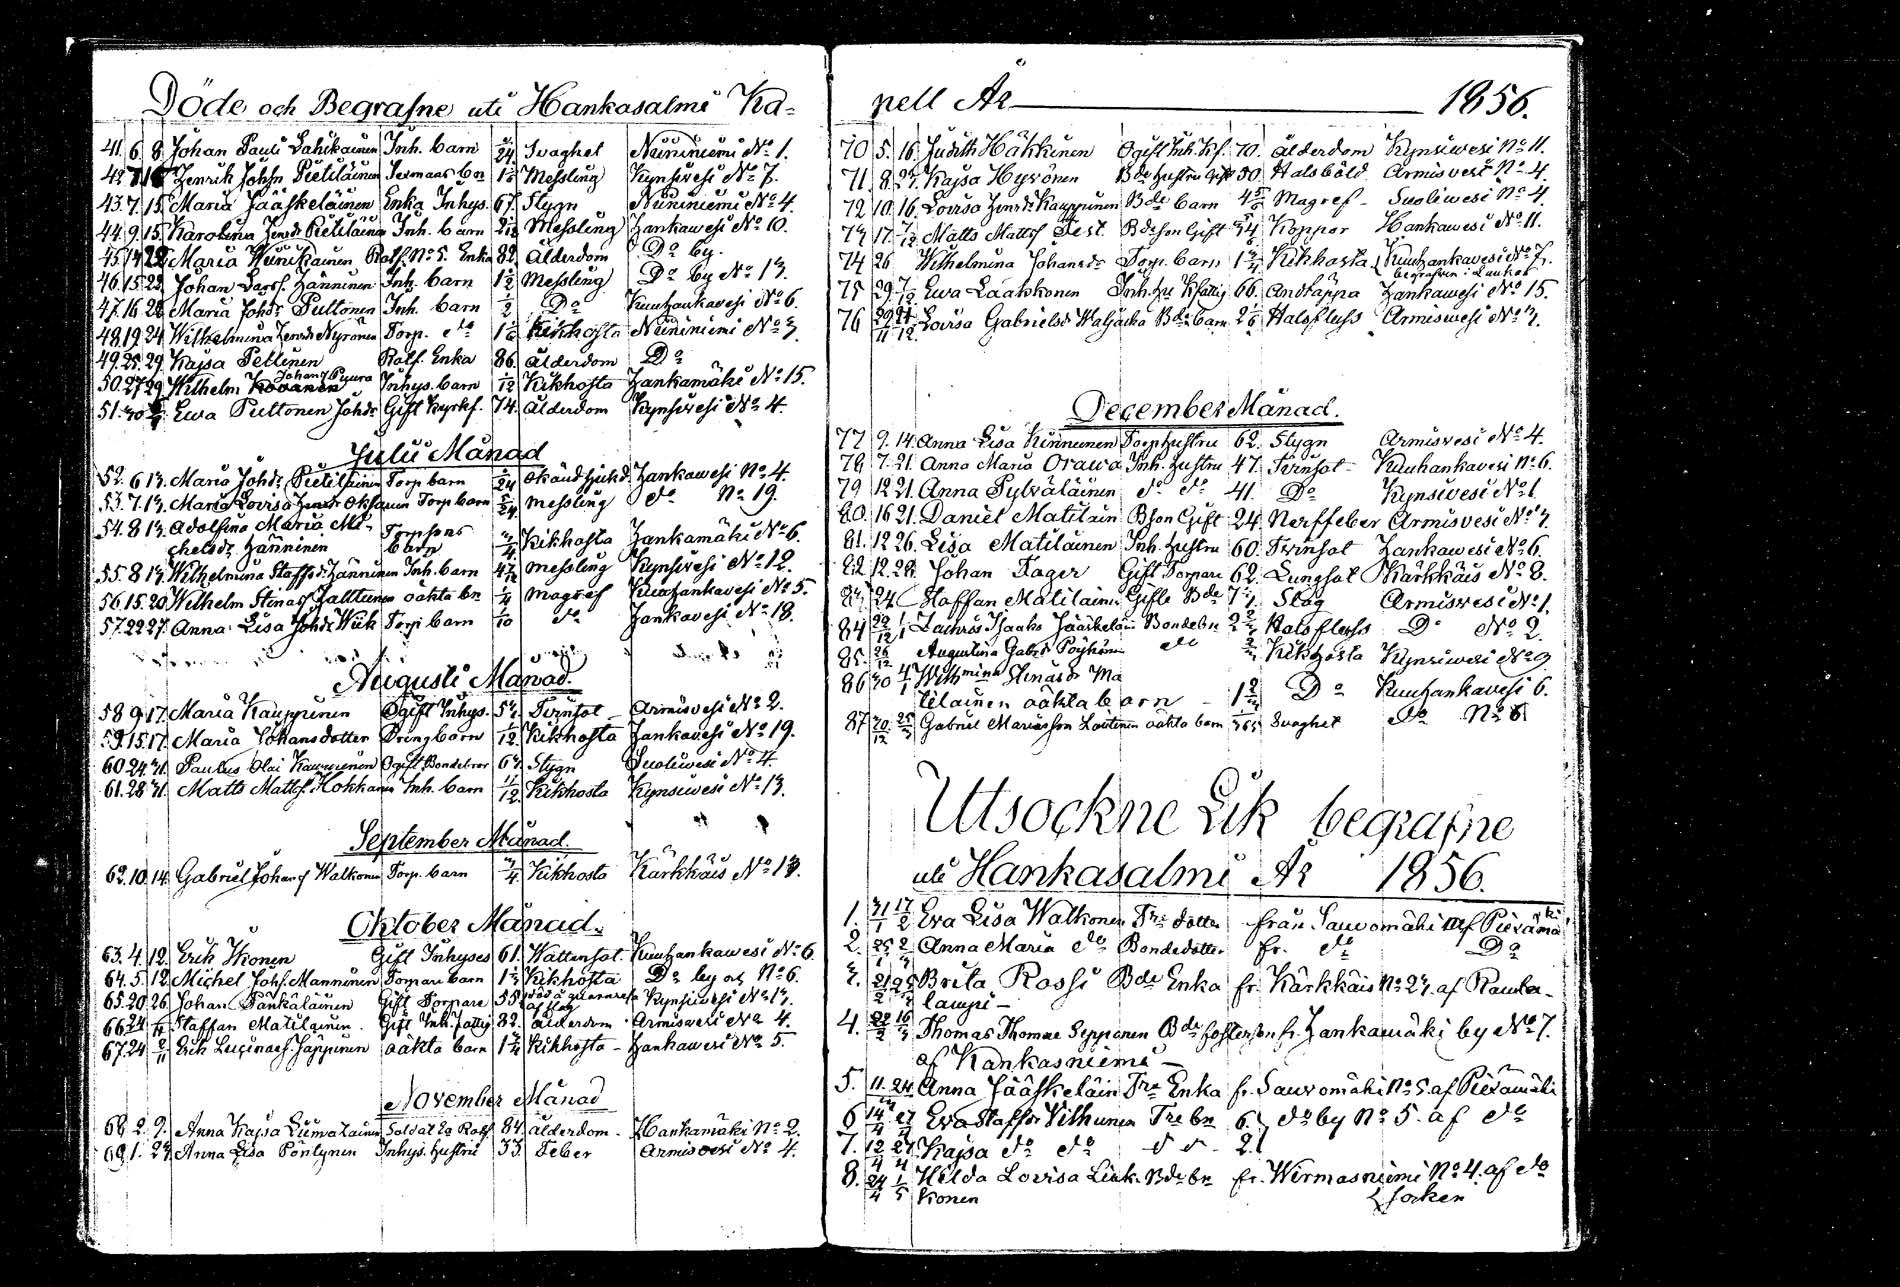 Döde och Begrafne uti Hankasalmi Ka-
41. 6 8 Johan Pauli Lahikainen Inh. barn 2/24 Svaghet Niininiemi No 1.
42 7 Henrik Johsn Pietiläinen bn Messling Kynsivesi No 7.
43. 7. 15. Maria Jääskeläinen Enka Inhys. 67. Stygn Niininiemi No 4.
44. 9. 15. Karolina Henrdr Pietiläinen Inh. barn Messling Hankawesi No 10.
45. 14 22 Maria Wänikainen Rotf. No 5. Enka 82. Ålderdom Do by.
46. 15. 23. Johan Larss. Hänninen Inh. barn 1 Messling Do by No 13.
47. 16 22 Maria Johdr Puttonen Inh. barn 1/2 Do Kuuhankavesi No 6.
48. 19 24 Wilhelmina Henrdr Nyrönen Torp. do Kikhosta Niininiemi No 3.
49. 25. 29. Kajsa Pellinen Rotf. Enka 86. ålderdom Do
Johans Puura
50. 27 29 Wilhelm Inhys. barn 1/12 Kikhosta Hankamäki No 15.
51. 30 Ewa Puttonen Johdr Gift Kyrkf. 74. ålderdom Kynsivesi No 4.
Julii Månad
52. 6 13. Maria Johdr Pietiläinen Torp barn 1/24 Okänd sjukd. Hankawesi No 4.
53. 7. 13. Maria Lovisa Henrdr Oksanen Torp barn 5/24 Messling do No 19.
54. 8 13. Adolfina Maria Mi-
chelsdr Hänninen Torpsons barn 3/4 Kikhosta Hankamäki No 6.
55. 8 13. Wilhelmina Staffsdr Hänninen Inh. barn Messling Kynsivesi No 12.
56. 15. 20 Wilhelm Stinas Jalttunen oäkta bn 1/4 Magref Kuuhankavesi No 5.
57. 22 27. Anna Lisa Johdr Wiik Torp barn 1/10 do Hankavesi No 18.
Augusti Månad.
58 9 17. Maria Kauppinen Ogift Inhys. Tvinsot Armisvesi No 2.
59. 15. 17. Maria Johansdotter Drengbarn 1/12. Kikhosta Hankavesi No 19.
60. 24. 31. Paulus Olai Kauppinen Ogift Bondebror 63. Stygn Suoliwesi No 4.
61. 28 31. Matts Mattss. Hokkanen Inh. barn 11/12. Kikhosta Kynsivesi No 13.
September Månad.
62. 10. 14. Gabriel Johans Walkonen Torp. barn 3/4 Kikhosta Kärkkäis No 13.
Oktober Månad.
63. 4. 12. Erik Ikonen Gift Inhyses 61. Wattensot. Kuuhankawesi No 6.
64. 5. 12. Michel Johs. Manninen Torpare barn Kikhosta Do by och No 6.
65. 20 26. Johan Pänkäläinen Gift Torpare 55. Kynsivesi No 13.
66. 24 Staffan Matilainen. Gift Inh. Fattig 82. ålderdom. Armisvesi No 4.
67. 24 2/11 Erik Lucinaes. Jäppinen oäkta barn Kikhosta - Hankawesi No 5.
November Månad
68. 2. 9. Anna Kajsa Liimatainen Soldat Ea Rotf 84. ålderdom. Hankamäki No 2.
69. 1. 23. Anna Lisa Pöntynen Inhys. Hustru 33. Feber Armisvesi No 4.
pell År 1856.
70 5. 16. Judith Häkkinen Ogift Inh. Kf. 70. ålderdom Kynsivesi No 11.
71. 8. 23. Kajsa Hyvönen Bde Hustru Gift 30. Halsböld Armisvesi No 4.
72 10. 16. Lovisa Henrdr Kauppinen Bde barn Magref - Suoliwesi No 4.
73 17. 7/12 Matts Mattss Test. Bdeson Gift 54 Koppor Hankawesi No 11.
74 26 Wilhelmina Johansdr Torp. barn Kikhosta Kuuhankavesi No 7.
begrafven i Laukas
75 29. 7/12 Ewa Laakkonen Inh. Hu Kfattig 66. Andtäppa Hankawesi No 15.
76 29/11 21/12 Lovisa Gabrielsdr Waljakka Bde barn Halsfluss Armisvesi No 3.
December Månad.
77 9. 14. Anna Lisa Kinnunen Torp Hustru 62. Stygn Armisvesi No 4.
78 7. 21. Anna Maria Orawa Inh. Hustru 47. Tvinsot - Kuuhankavesi No 6.
79 12 21. Anna Pylväläinen do do 41. Do Kynsivesi No 1.
80. 16 21. Daniel Matilain Bson Gift 24. Nerffeber Armisvesi No 3.
81. 12 26. Lisa Matilainen Inh. Hustru 60. Tvinsot Hankawesi No 6.
82 12. 28. Johan Fager Gift Torpare 62. Lungsot Kärkkäis No 8.
83 24 Staffan Matilainen Gifte Bde Slag Armisvesi No 1.
84 29/12 1/1 Zachris Isaaks Jääskeläin Bondebn Halsfluss Do No 2.
85. 26/12 Augustina Gabrdr Pöyhönen do Kikhosta Kynsivesi No 9
86 30 4/1 Wilhmina Stinasdr Ma
tilainen oäkta barn - Do Kuuhankavesi 6.
87 30/12 Gabriel Mariasson Lautinen oäkta barn Svaghet do No 6
Utsockne Lik begrafne
uti Hankasalmi År 1856.
1. 31/1 17/2 Eva Lisa Walkonen Tre dotter från Sauvomäki af Piexämäki
2. 25/1 2 Anna Maria do Bondedotter fr. do Do
3. 21/2 Brita Rossi Bde Enka fr. Kärkkäis No 23. af Rauta-
lampi -
4. 22/2 16/3 Thomas Thomae Sepponen Bde fosterson fr. Hankamäki by No 7.
af Kankasniemi -
5. 11. 24 Anna Jääskeläin Tre Enka fr. Sauvomäki No 5. af Piexämäki
6 14/4 27/4 Eva Staffsdr Vilhunen Tre bn 6. do by No 5. af do
7. 12/4 27/4 Kajsa do do 2.
8. 24/4 1/5 Hilda Lovisa Liuk- Bde bn fr. Wirmasniemi No 4. af do
konen Socken